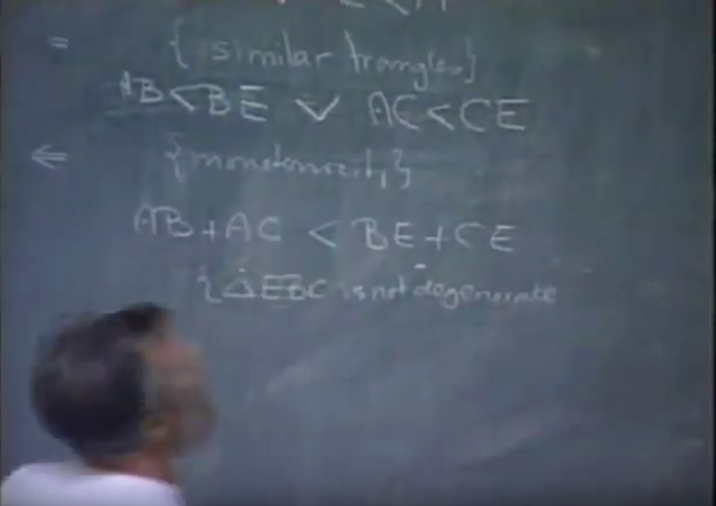 = { similar triangles}
AB<BE ∨ AC<CE
⇐ {monotonicity}
AB+AC < BE+CE
{△EBC is not degenerate